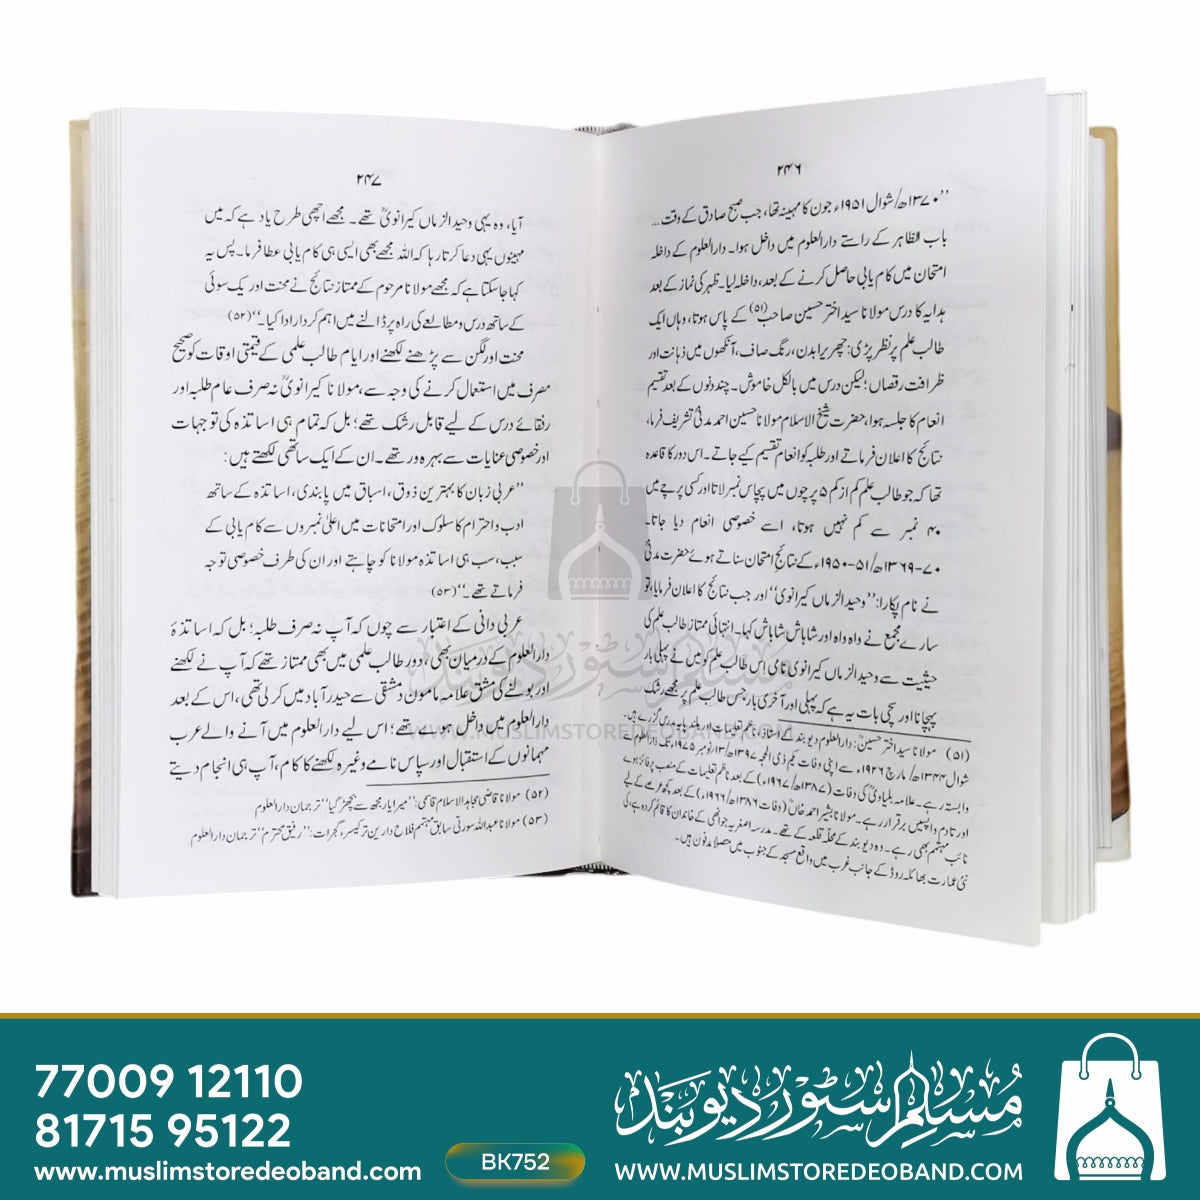 ۲۴۶
’’۱۳۷۰ھ/شوال ۱۹۵۱ء جون کا مہینہ تھا، جب صبح صادق کے وقت...
باب الظاہر کے راستے دارالعلوم میں داخل ہوا۔ دارالعلوم کے داخلہ
امتحان میں کام یابی حاصل کرنے کے بعد، داخلہ لیا۔ ظہر کی نماز کے بعد
ہدایہ کا درس مولانا سید اختر حسین صاحب (۵۱) کے پاس ہوتا، وہاں ایک
طالب علم پر نظر پڑی: چھریرا بدن، رنگ صاف، آنکھوں میں ذہانت اور
ظرافت رقصاں؛ لیکن درس میں بالکل خاموش۔ چند دنوں کے بعد تقسیم
انعام کا جلسہ ہوا، حضرت شیخ الاسلام مولانا حسین احمد مدنیؒ تشریف فرما،
نتائج کا اعلان فرماتے اور طلبہ کو انعام تقسیم کیے جاتے۔ اس دور کا قاعدہ
تھا کہ جو طالب علم کم از کم ۵ پرچوں میں پچاس نمبر لاتا اور کسی پرچے میں
۴۰ نمبر سے کم نہیں ہوتا، اسے خصوصی انعام دیا جاتا۔
۷۰-۱۳۶۹ھ/۵۱-۱۹۵۰ء کے نتائج امتحان سناتے ہوئے حضرت مدنیؒ
نے نام پکارا: ’’وحید الزماں کیرانوی‘‘ اور جب نتائج کا اعلان فرمایا، تو
سارے مجمع نے واہ واہ اور شاباش شاباش کہا۔ انتہائی ممتاز طالب علم کی
حیثیت سے وحید الزماں کیرانوی نامی اس طالب علم کو میں نے پہلی بار
پہچانا اور سچی بات یہ ہے کہ پہلی اور آخری بار، جس طالب علم پر مجھے رشک
(۵۱) مولانا سید اختر حسینؒ: دارالعلوم دیوبند کے استاذ، ناظم تعلیمات اور بلند پایہ مدرس گزرے ہیں۔
شوال ۱۳۴۴ھ/ مارچ ۱۹۲۶ء سے اپنی وفات یکم ذی الحجہ ۱۳۹۷ھ/۱۳/نومبر ۱۹۷۵ء تک دارالعلوم سے
وابستہ رہے۔ علامہ بلیاویؒ کی وفات (۱۳۸۷ھ/۱۹۶۷ء) کے بعد ناظم تعلیمات کے منصب پر فائز ہوئے
اور تادم واپسیں برقرار رہے۔ مولانا بشیر احمد خاںؒ (وفات ۱۳۸۶ھ/۱۹۶۶ء) کے بعد کچھ عرصے کے لیے
نائب مہتمم بھی رہے۔ وہ دیوبند کے محلہ قلعہ کے تھے۔ مدرسہ اصغریہ جو انھی کے خاندان کا قائم کردہ ہے، کی
نئی عمارت بھائلہ روڈ کے جانب غرب میں واقع مسجد کے جنوب میں متصلا مدفون ہیں۔
۲۴۷
آیا، وہ یہی وحید الزماں کیرانویؒ تھے۔ مجھے اچھی طرح یاد ہے کہ میں
مہینوں یہی دعا کرتا رہا کہ اللہ مجھے بھی ایسی ہی کام یابی عطا فرما۔ پس یہ
کہا جا سکتا ہے کہ مجھے مولانا مرحوم کے ممتاز نتائج نے محنت اور یک سوئی
کے ساتھ درس و مطالعے کی راہ پر ڈالنے میں اہم کردار ادا کیا۔‘‘(۵۲)
محنت اور لگن سے پڑھنے لکھنے اور ایام طالب علمی کے قیمتی اوقات کو صحیح
مصرف میں استعمال کرنے کی وجہ سے، مولانا کیرانویؒ نہ صرف عام طلبہ اور
رفقائے درس کے لیے قابل رشک تھے؛ بل کہ تمام ہی اساتذہ کی توجہات
اور خصوصی عنایات سے بہرہ ور تھے۔ ان کے ایک ساتھی لکھتے ہیں:
’’عربی زبان کا بہترین ذوق، اسباق میں پابندی، اساتذہ کے ساتھ
ادب و احترام کا سلوک اور امتحانات میں اعلیٰ نمبروں سے کام یابی کے
سبب، سب ہی اساتذہ مولانا کو چاہتے اور ان کی طرف خصوصی توجہ
فرماتے تھے۔‘‘(۵۳)
عربی دانی کے اعتبار سے چوں کہ آپ نہ صرف طلبہ؛ بل کہ اساتذۂ
دارالعلوم کے درمیان بھی، دور طالب علمی میں بھی ممتاز تھے کہ آپ نے لکھنے
اور بولنے کی مشق علامہ مامون دمشقی سے حیدرآباد میں کر لی تھی، اس کے بعد
دارالعلوم میں داخل ہوئے تھے؛ اس لیے دارالعلوم میں آنے والے عرب
مہمانوں کے استقبال اور سپاس نامے وغیرہ لکھنے کا کام، آپ ہی انجام دیتے
(۵۲) مولانا قاضی مجاہد الاسلام قاسمی: ’’میرا یار مجھ سے بچھڑ گیا‘‘ ترجمان دارالعلوم
(۵۳) مولانا عبداللہ سورتی سابق مہتمم فلاح دارین ترکیسر، گجرات: ’’رفیق محترم‘‘ ترجمان دارالعلوم
مسلم سٹور دیوبند
WWW.MUSLIMSTOREDEOBAND.COM
77009 12110
81715 95122
www.muslimstoredeoband.com
BK752
مسلم سٹور دیوبند
WWW.MUSLIMSTOREDEOBAND.COM